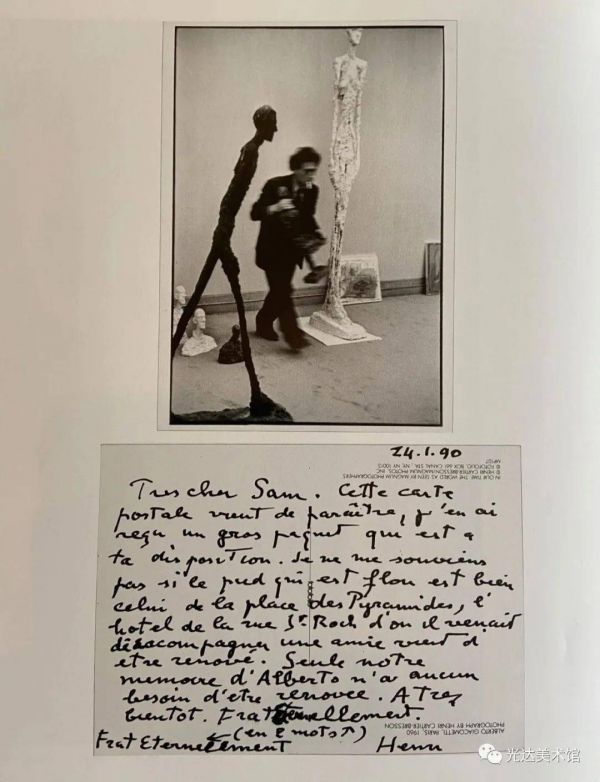 24.1.90
IN OUR TIME: THE WORLD AS SEEN BY MAGNUM PHOTOGRAPHERS
© HENRI CARTIER-BRESSON/MAGNUM PHOTOS, INC.
© FOTOFOLIO, BOX 661 CANAL STA. NY, NY 10013
MP107
Tres cher Sam. Cette carte
postale vient de paraître, j'en ai
reçu un gros paquet qui est a
ta disposition. Je ne me souviens
pas si le pied qui est flou est bien
celui de la place des Pyramides, l'
hotel de la rue St Roch d'on il venait
accompagner une amie vient d
etre renové. Seule notre
memoire d'Alberto n'a aucun
besoin d'etre renovee. A tres
bientot. Fraternellement.
(en 2 mots↑)
Frat Eternellement Henri
ALBERTO GIACOMETTI, PARIS, 1960
PHOTOGRAPH BY HENRI CARTIER-BRESSON
光达美术馆